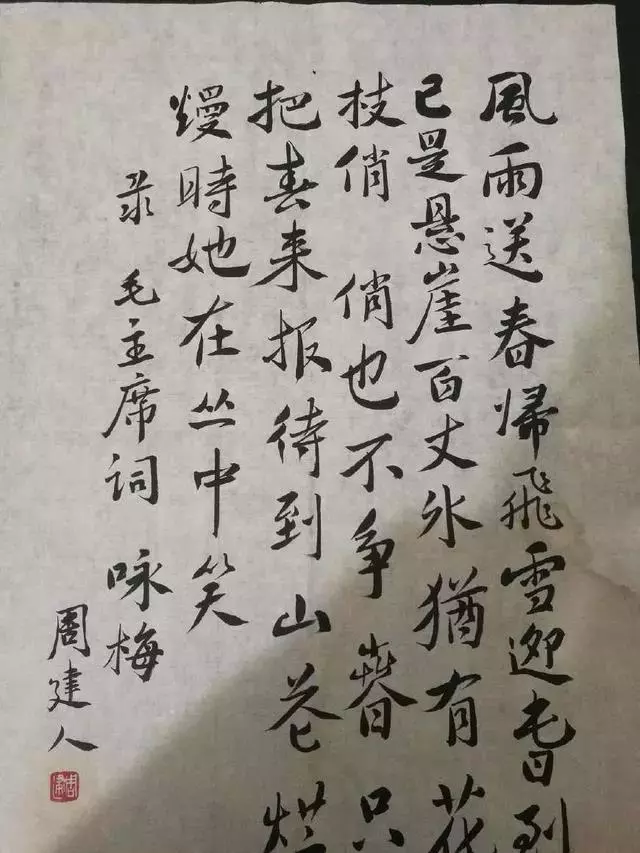 風雨送春帰飛雪迎春到
已是悬崖百丈冰猶有花
枝俏 俏也不争春只
把春来报待到山花烂
熳時她在丛中笑
录 毛主席词 咏梅
周建人